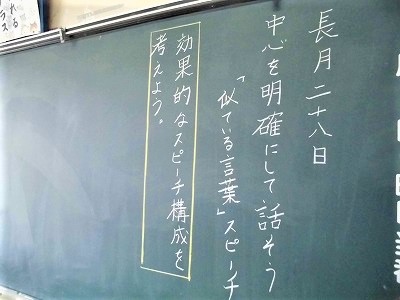 長月二十八日
中心を明確にして話そう
「似ている言葉」スピーチ
効果的なスピーチ構成を
考えよう。